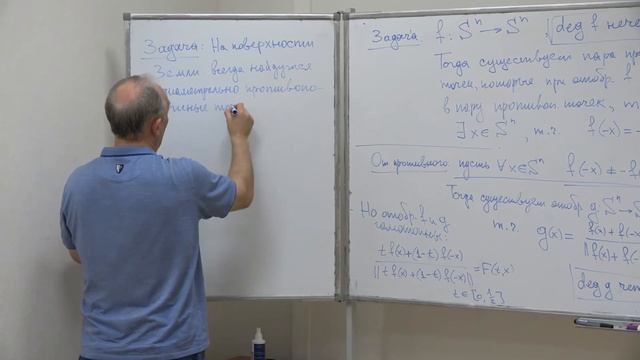 Задача: На поверхности
Земли всегда найдутся
диаметрально противопо-
Задача f: Sⁿ → Sⁿ, deg f нече
Тогда существует пара пр
точек, которые при отобр. f
в пару противоп. точек, т
∃ x ∈ Sⁿ, т.ч. f(-x) =
От противного: пусть ∀ x ∈ Sⁿ f(-x) ≠ -f
Тогда существует отобр. g: Sⁿ → S
т.ч. g(x) = f(x) + f(-x) / ||f(x) + f(-
Но отобр. f и g
гомотопны:
t f(x) + (1-t) f(-x) / || t f(x) + (1-t) f(-x) || = F(t, x)
t ∈ [0, 1/2]
deg g чет